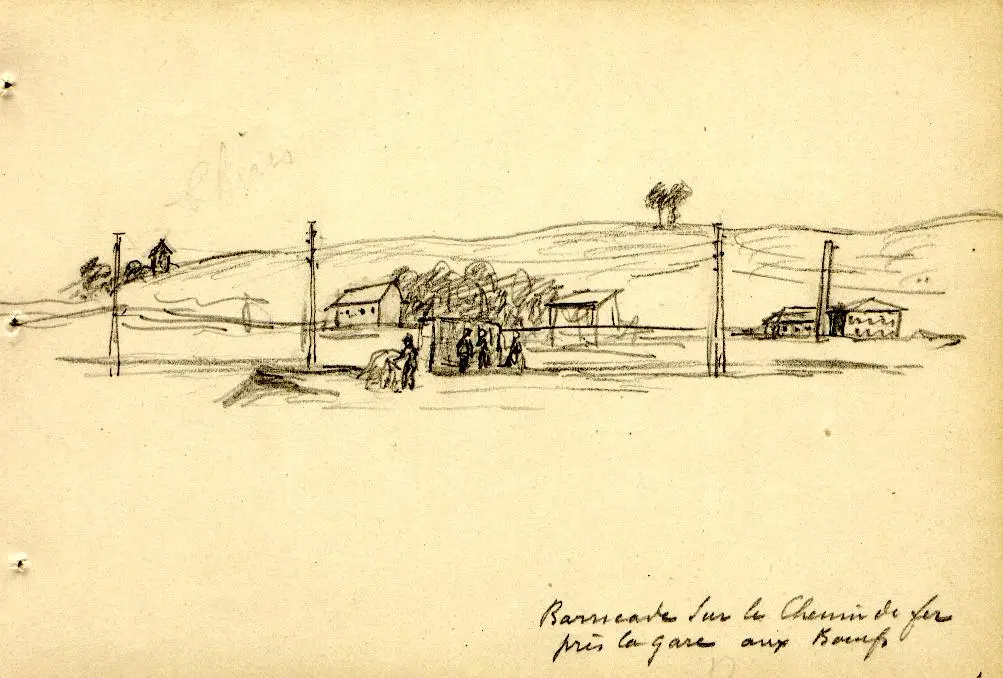 Barricade sur le Chemin de fer
près la gare aux Boeufs